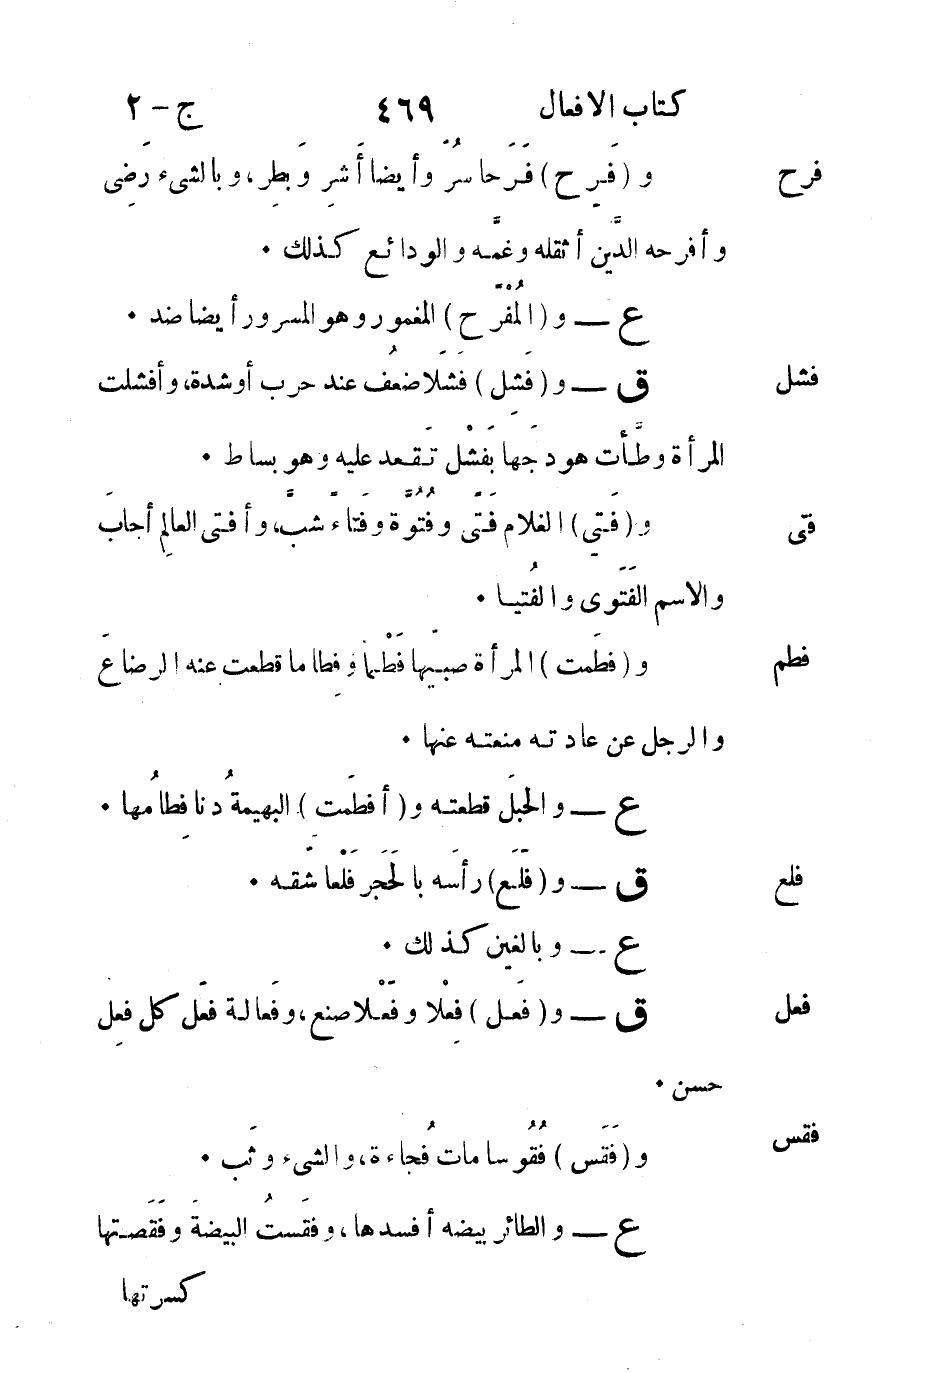 كتاب الافعال ٤٦٩ ج – ٢
فرح و (فَرِح) فَرَحا سُرَّ وأيضا أَشِر وبَطِر، وبالشىء رَضِى
وأفرحه الدَّين أثقله وغمَّه والودائع كذلك •
ع — و (المُفْرَح) المغمور وهو المسرور أيضا ضد •
فشل ق — و (فَشِل) فَشَلا ضعُف عند حرب أو شدة، وأفشلت
المرأة وطَّأت هودجَها بفَشْل تَقعد عليه وهو بساط •
فتى و (فَتِى) الغلام فَتًى وفُتُوَّة وفَتاءً شبَّ، وأفتى العالِم أجابَ
والاسم الفَتَوى والفُتيا •
فطم و (فطَمت) المرأة صبيَّها فَطْما وفِطاما قطعت عنه الرضاعَ
والرجل عن عادته منعته عنها •
ع — والحبَل قطعته و (أفطَمت) البهيمةُ دنا فِطامُها •
فلع ق — و (فَلَع) رأسَه بالحَجَر فَلْعا شَقّه •
ع — وبالغين كذلك •
فعل ق — و (فَعل) فِعْلا وفَعْلا صنع، وفَعالة فَعَل كل فِعل
حسن •
فقس و (فَقَس) فُقُوسا مات فُجاءة، والشىء وثَب •
ع — والطائر بيضه أفسدها، وفقَستُ البيضةَ وفَقَصتها
كسرتها